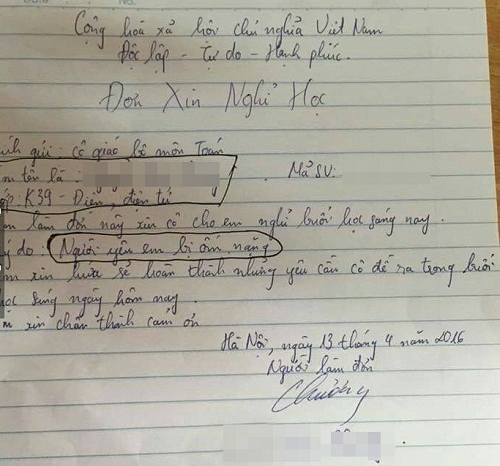 Cộng hòa xã hội chủ nghĩa Việt Nam
Độc lập - Tự do - Hạnh phúc.
Đơn Xin Nghỉ Học
ính gửi: cô giáo bộ môn Toán
m tên là:
Mã SV:
ớp: K39 - Điện, điện tử
m làm đơn này xin cô cho em nghỉ buổi học sáng nay.
ý do: Người yêu em bị ốm nặng
m xin hứa sẽ hoàn thành những yêu cầu cô đề ra trong buổi
học sáng ngày hôm nay.
m xin chân thành cảm ơn
Hà Nội, ngày 13 tháng 4 năm 2016
Người làm đơn